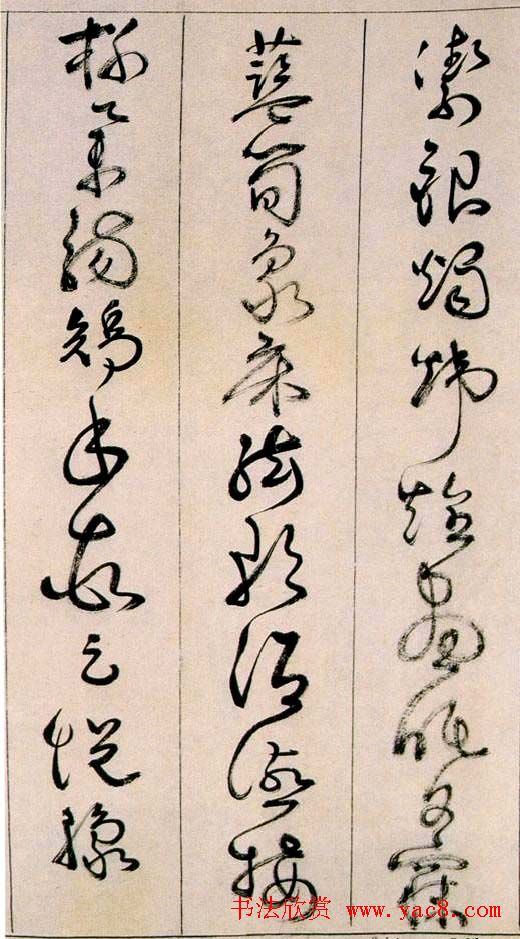 潔銀燭煒煌晝眠夕寐
藍筍象床絃歌酒讌接
杯舉觴矯手頓足悅豫
书法欣赏 www.yac8.com